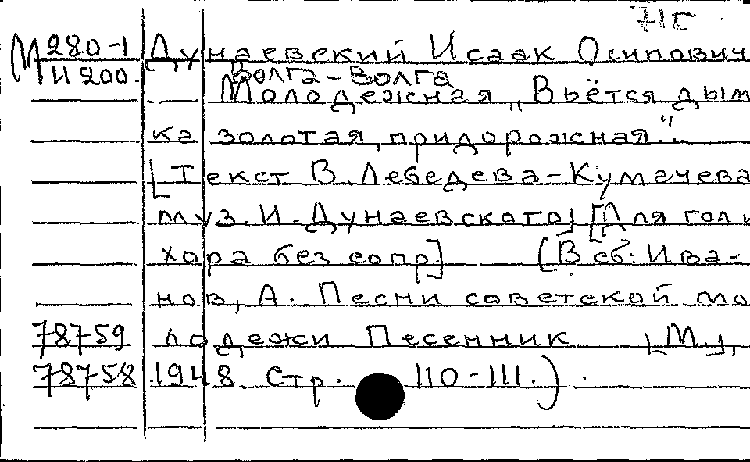 71Г
М 280-1 Дунаевский Исаак Осипович
11200. Волга-Волга
Молодежная „Вьётся дым
ка золотая, придорожная".
[Текст В. Лебедева-Кумачева
муз. И. Дунаевского] [Для гол и
хора без сопр] (В сб: Ива-
нов, А. Песни советской мо
78759 лодежи Песенник М.,
78758 1948. Стр. 110-111.).